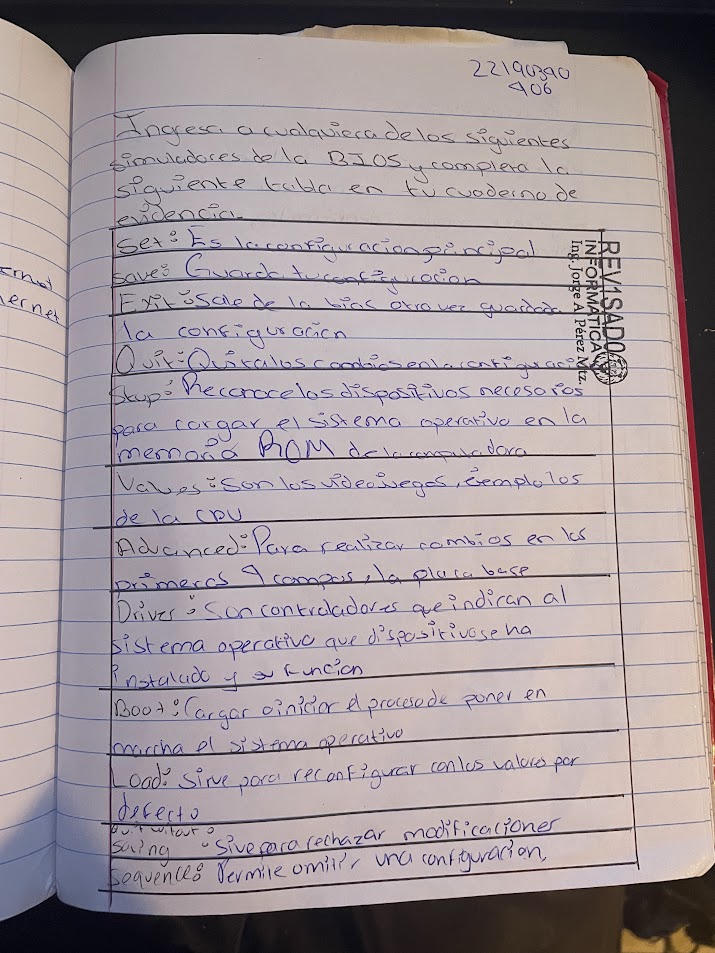 22190390
406
Ingresa a cualquiera de los siguientes
simuladores de la BIOS y completa la
siguiente tabla en tu cuaderno de
evidencia.
Set: Es la configuracion principal
save: Guarda tu configuracion
Exit: Sale de la bias otra vez guardada
la configuración
Quit: Quita los cambios en la configuración
Skup: Reconoce los dispositivos necesarios
para cargar el sistema operativo en la
memoria ROM de la computadora
Values: Son los videojuegos, ejemplo los
de la CPU
Advanced: Para realizar cambios en los
primeros 9 campos, la placa base
Drives: Son controladores que indican al
sistema operativo que dispositivo se ha
instalado y su funcion
Boot: Cargar o iniciar el proceso de poner en
marcha el sistema operativo
Load: Sirve para reconfigurar con los valores por
defecto
Quit witout
Saving: Sive para rechazar modificaciones
Sequence: Permite omitir una configuracion.
REV1SADO
INFORMÁTICA
Ing. Jorge A. Pérez Mtz.
ernet